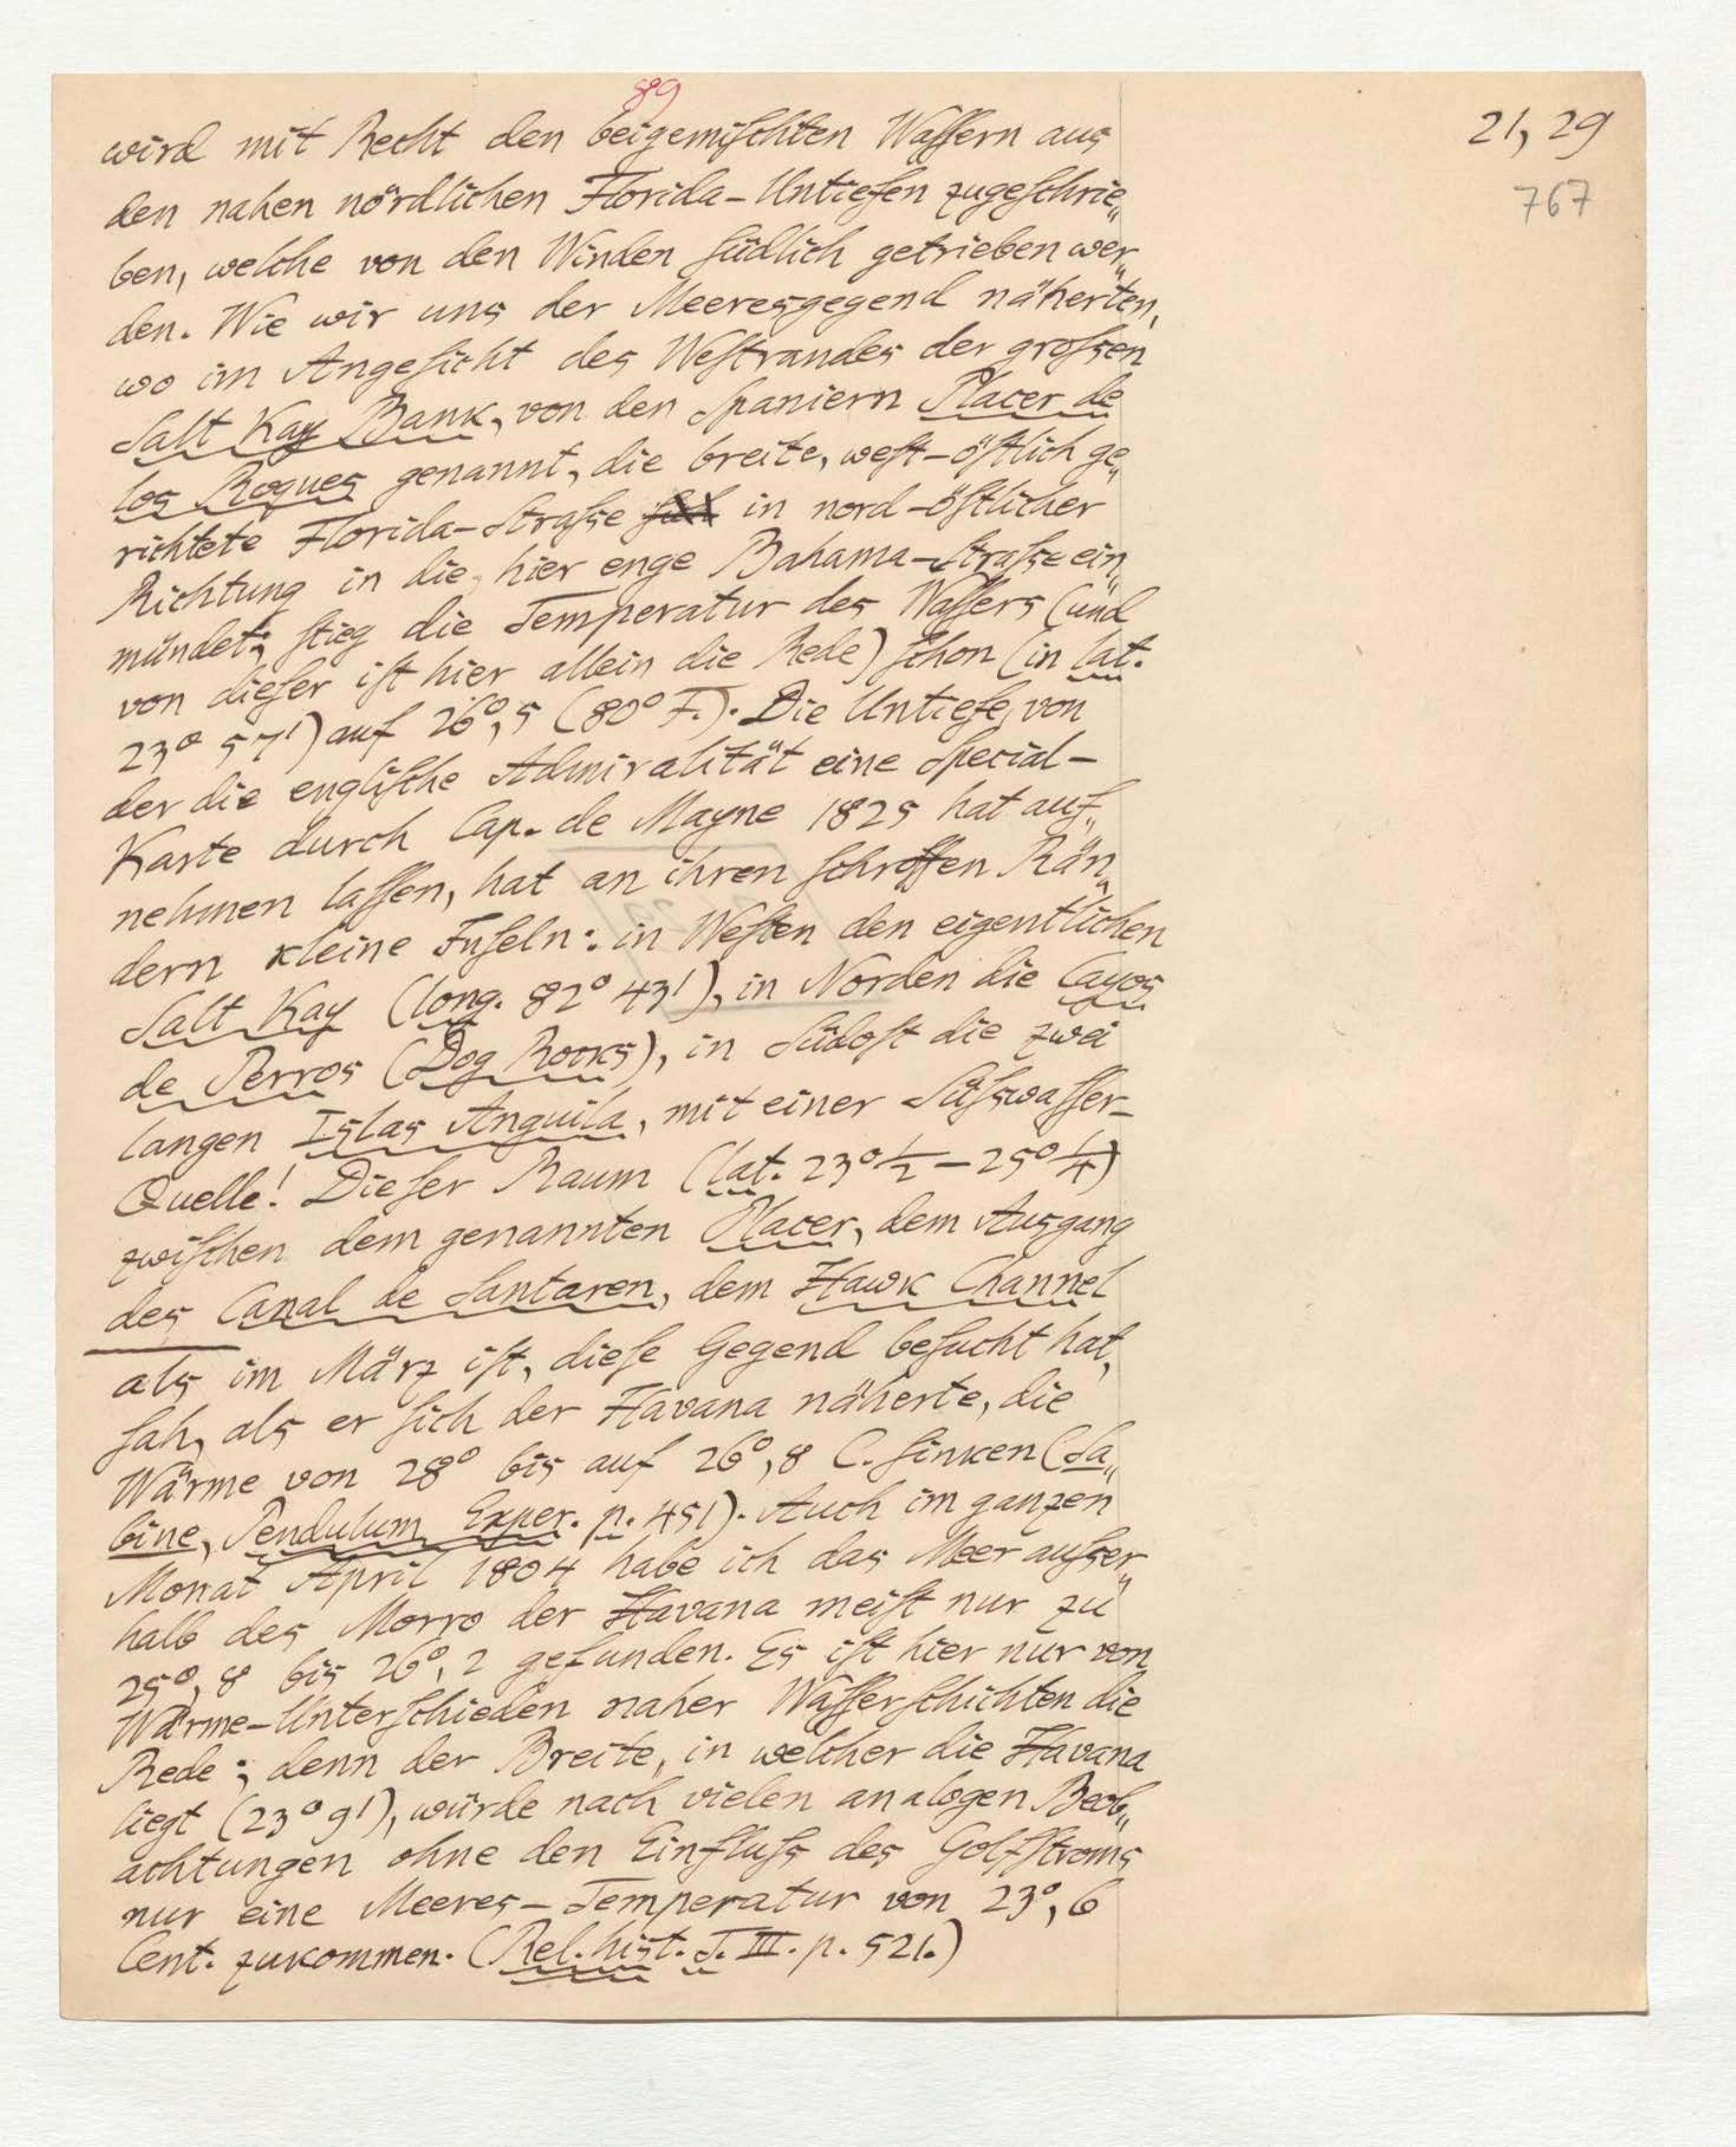 89
21, 29
767
wird mit Recht den beigemischten Wassern aus
den nahen nördlichen Florida-Untiefen zugeschrie„
ben, welche von den Winden südlich getrieben wer„
den. Wie wir uns der Meeresgegend näherten,
wo im Angesicht des Westrandes der grossen
Salt Kay Bank, von den Spaniern Placer de
los Roques genannt, die breite, west-östlich ge„
richtete Florida-Strasse in nord-östlicher
Richtung in die, hier enge Bahama-Strasse ein„
mündet; stieg die Temperatur des Wassers (und
von dieser ist hier allein die Rede) schon (in lat.
23° 57') auf 26°,5 (80° F.). Die Untiefe, von
der die englische Admiralität eine Special-
Karte durch Cap. de Mayne 1825 hat auf„
nehmen lassen, hat an ihren schroffen Rän„
dern kleine Inseln: in Westen den eigentlichen
Salt Kay (long. 82° 43'), in Norden die Cayos
de Perros (Dog Rocks), in Südost die zwei
langen Islas Anguila, mit einer Süsswasser-
Quelle! Dieser Raum (lat. 23°½ – 25°¼)
zwischen dem genannten Placer, dem Ausgang
des Canal de Santaren, dem Hawk Channel
als im März ist, diese Gegend besucht hat,
sah, als er sich der Havana näherte, die
Wärme von 28° bis auf 26°,8 C. sinken (Sa„
bine, Pendulum Exper. p. 451). Auch im ganzen
Monat April 1804 habe ich das Meer ausser„
halb des Morro der Havana meist nur zu
25°,8 bis 26°,2 gefunden. Es ist hier nur von
Wärme-Unterschieden naher Wasserschichten die
Rede; denn der Breite, in welcher die Havana
liegt (23° 9'), würde nach vielen analogen Beob„
achtungen ohne den Einfluss des Golfstroms
nur eine Meeres-Temperatur von 23°,6
Cent. zukommen. (Rel. hist. T. III. p. 521.)